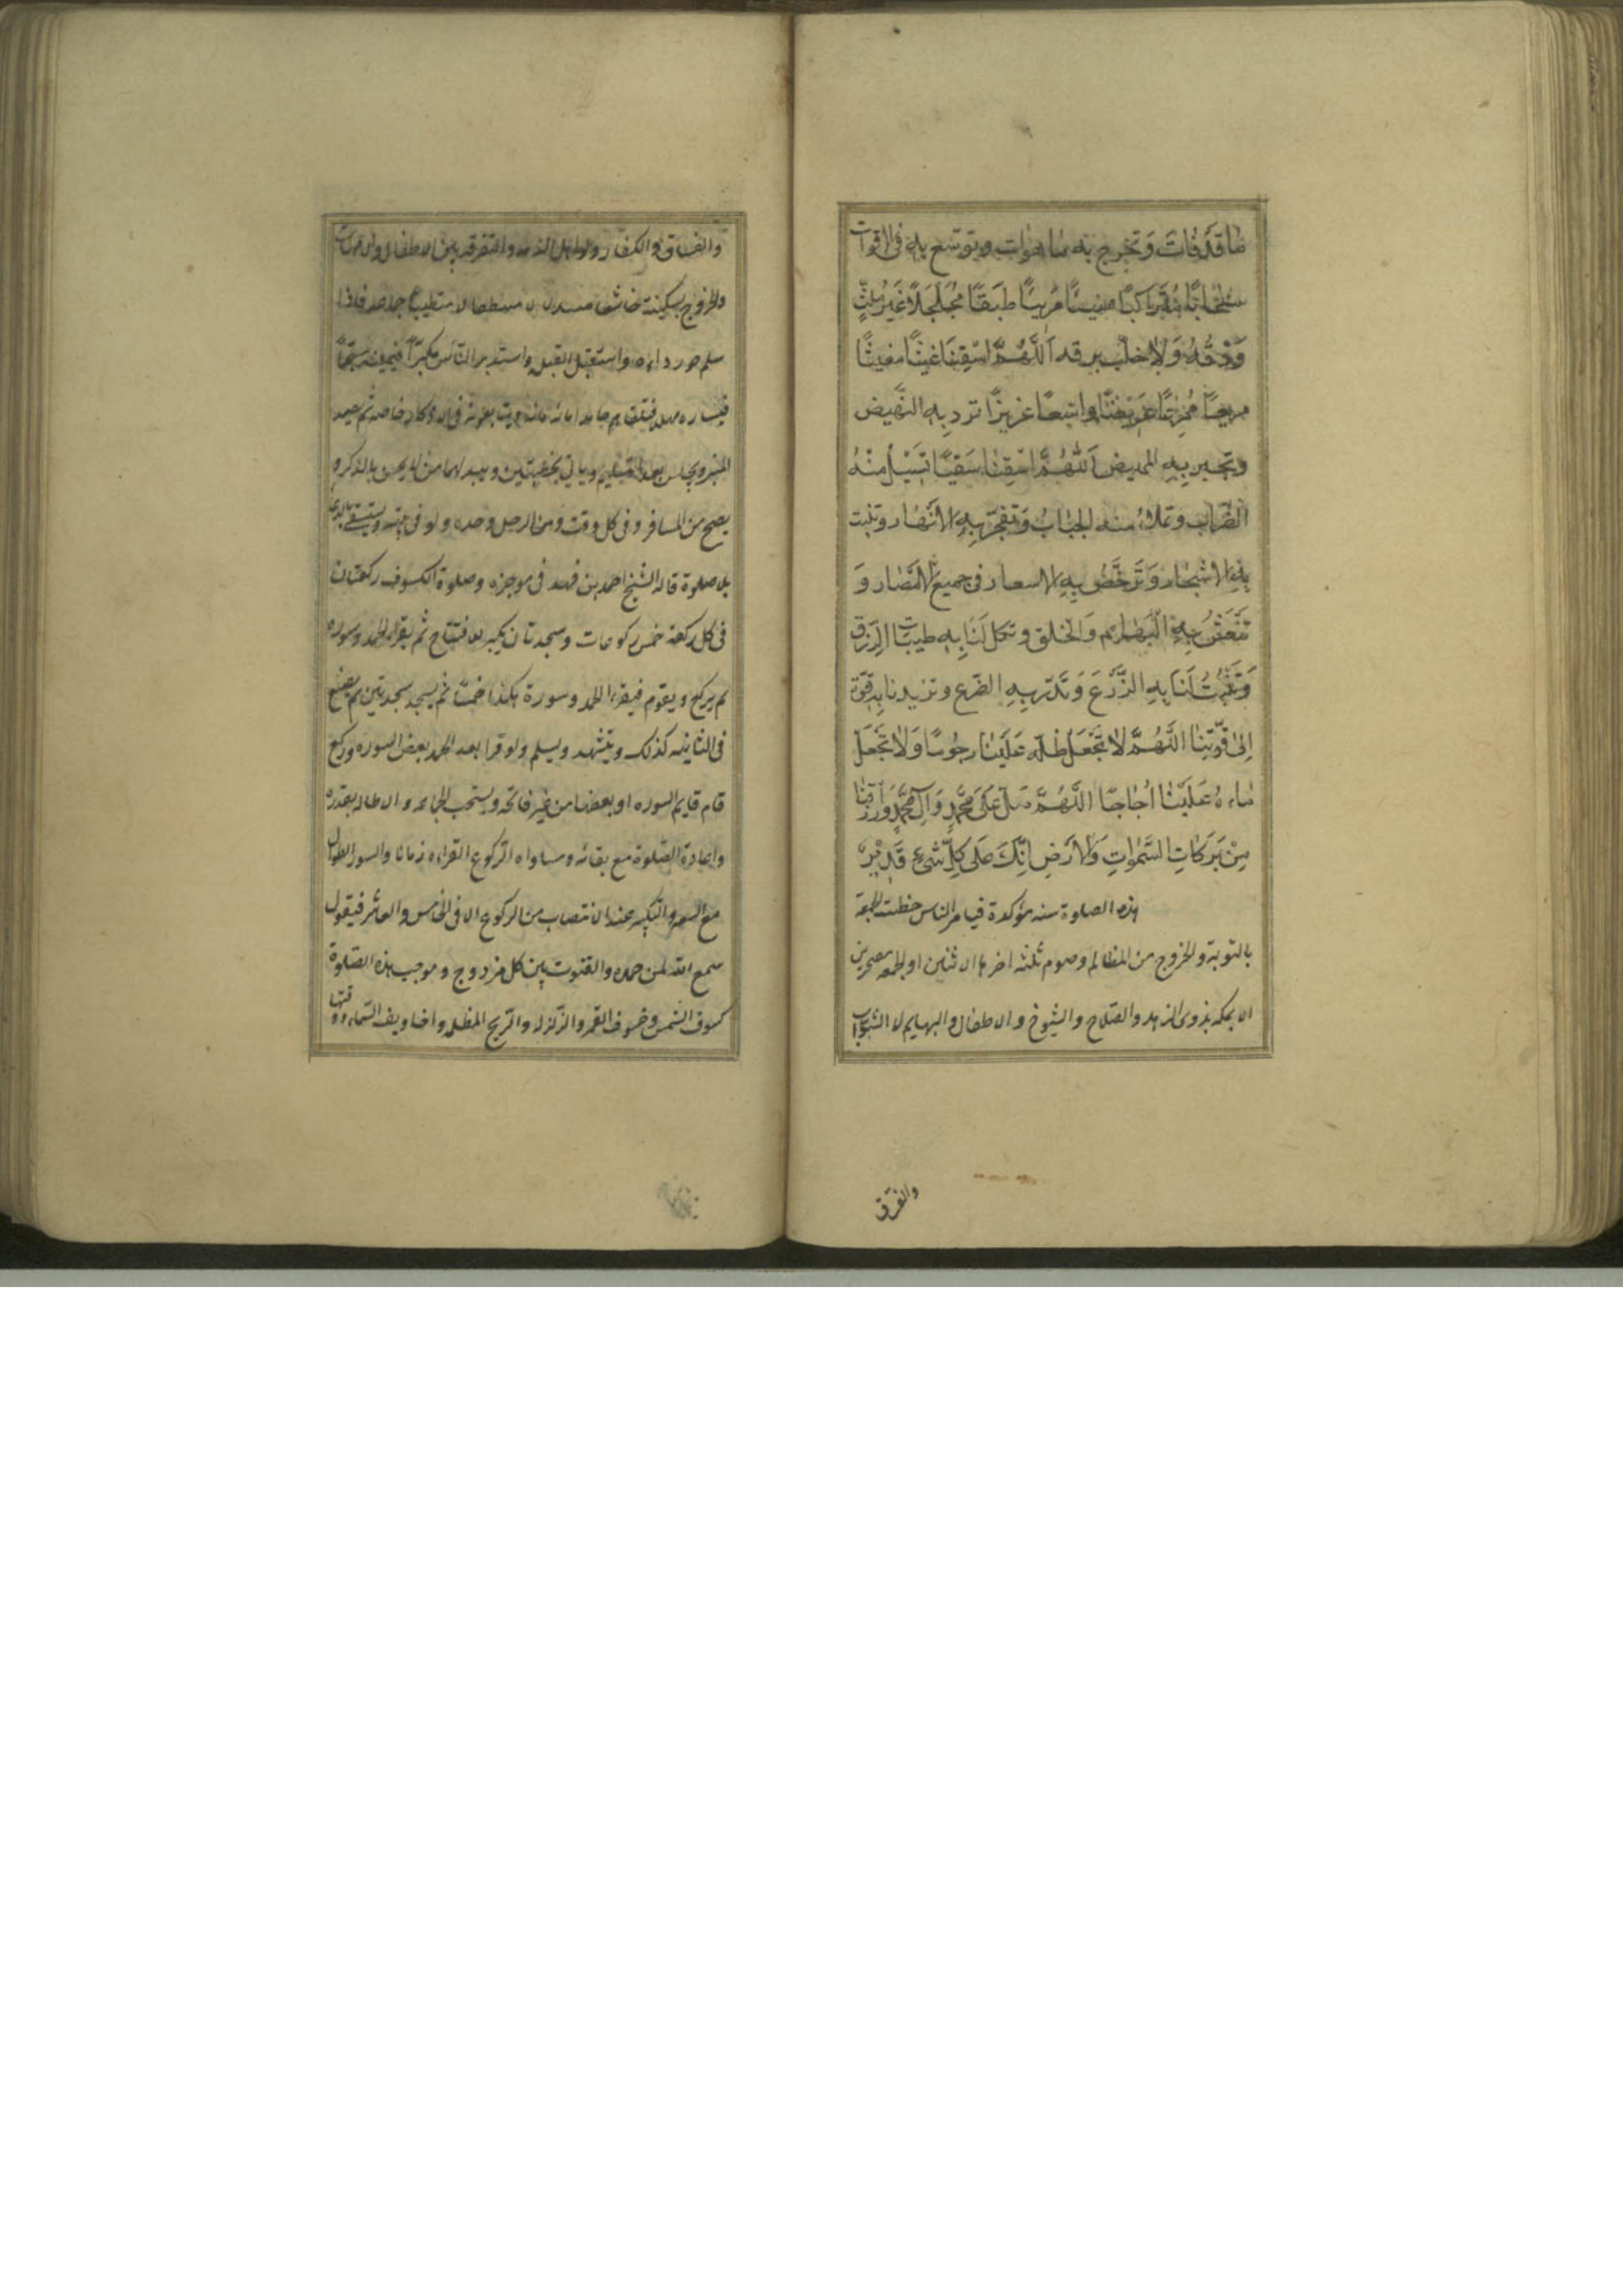 ما قد فات وتخرج به ما هوات وتوسع به فى الاقوات
سحابًا متراكبًا هنيئًا مريئًا طبقًا مجلجلًا غير ملثّ
ودقه ولا خلّب برقه اللّهمّ اسقنا غيثًا مغيثًا
مريعًا ممرعًا عريضًا واسعًا عزيزًا ترد به النهيض
وتجبر به المهيض اللّهمّ اسقنا سقيًا تسيل منه
الظراب وتملأ منه الجباب وتفجر به الانهار وتنبت
به الاشجار وترخص به الاسعار فى جميع الامصار و
تنعش به البهايم والخلق وتكمل لنا به طيبات الرزق
وتنبت لنا به الزرع وتدرّ به الضرع وتزيدنا به قوة
الى قوّتنا اللّهمّ لا تجعل ظله علينا رجومًا ولا تجعل
ماءه علينا اجاجًا اللّهمّ صلّ على محمّد وآل محمّد وارزقنا
من بركات السّموات والارض انّك على كلّ شىء قدير
هذه الصلوة سنه مؤكدة فيامر الناس خطيب الجمعة
بالتوبة والخروج من المظالم وصوم ثلثه اخرها الاثنين او الجمعه مصحرين
الا بمكه بذوى الزهد والصلاح والشيوخ والاطفال والبهايم لا الشواب
والفرق
والفساق والكفار ولو اهل الذمه والتفرقه بين الاطفال والامهات
والخروج بسكينة خاشعا
سلم حوّر رداءه واستقبل القبله واستدبر الناس مكبّرًا
المنبر ويجلس بعد التسليم وياتى بخطبتين ويبدلهما من لا يحسن بالذكر و
يصح من المسافر وفى كل وقت ومن الرجل وحده ولو فى بيته ويستسقى بالدعاء
بلا صلوة قاله الشيخ احمد بن فهد فى موجزه وصلوة الكسوف ركعتان
فى كل ركعة خمس ركوعات وسجدتان يكبر للافتتاح ثم يقراء الحمد وسوره
ثم يركع ويقوم فيقراء الحمد وسورة هكذا خمسًا ثم يسجد سجدتين ثم يصنع
فى الثانيه كذلك ويتشهد ويسلم ولو قرا بعد الحمد بعض السوره وركع
قام فايتم السوره او بعضها من غير فاتحه ويستحب الجماعه والاطاله بقدره
واعادة الصلوة مع بقائه ومساواه الركوع القراءه زمانا والسور الطوال
مع السعه والتكبير عند الانتصاب من الركوع الا فى الخامس والعاشر فيقول
سمع الله لمن حمده والقنوت بين كل مزدوج وموجب هذه الصلوة
كسوف الشمس وخسوف القمر والزلزله والريح المظلمه واخاويف السّماء ووقتها